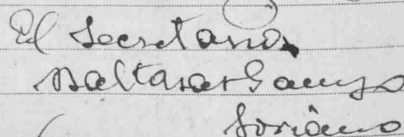 El Secretario
Baltasar Campo
Soriano